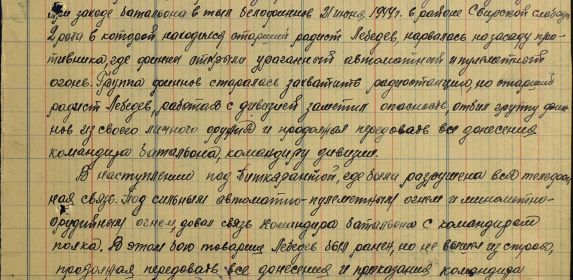 При заходе батальона в тыл белофиннов 21 июня 1944 г. в районе Свирской слободы
2 рота в которой находился старший радист Лебедев, нарвалась на засаду про-
тивника, где финны открыли ураганный автоматный и пулеметный
огонь. Группа финнов старалась захватить радиостанцию, но старший
радист Лебедев, работая с дивизией заметил опасность, отбил группу фин-
нов из своего личного оружия и продолжал передовать все донесения
командира батальона, командиру дивизии.
В наступлении под Питкярантой, где была разрушена вся телефон-
ная связь. Под сильным автоматно-пулеметным огнем и минометно-
орудийным огнем, довал связь командира батальона с командиром
полка. В этом бою товарищ Лебедев был ранен, но не вышел из строя,
продолжая передовать все донесения и приказания командира